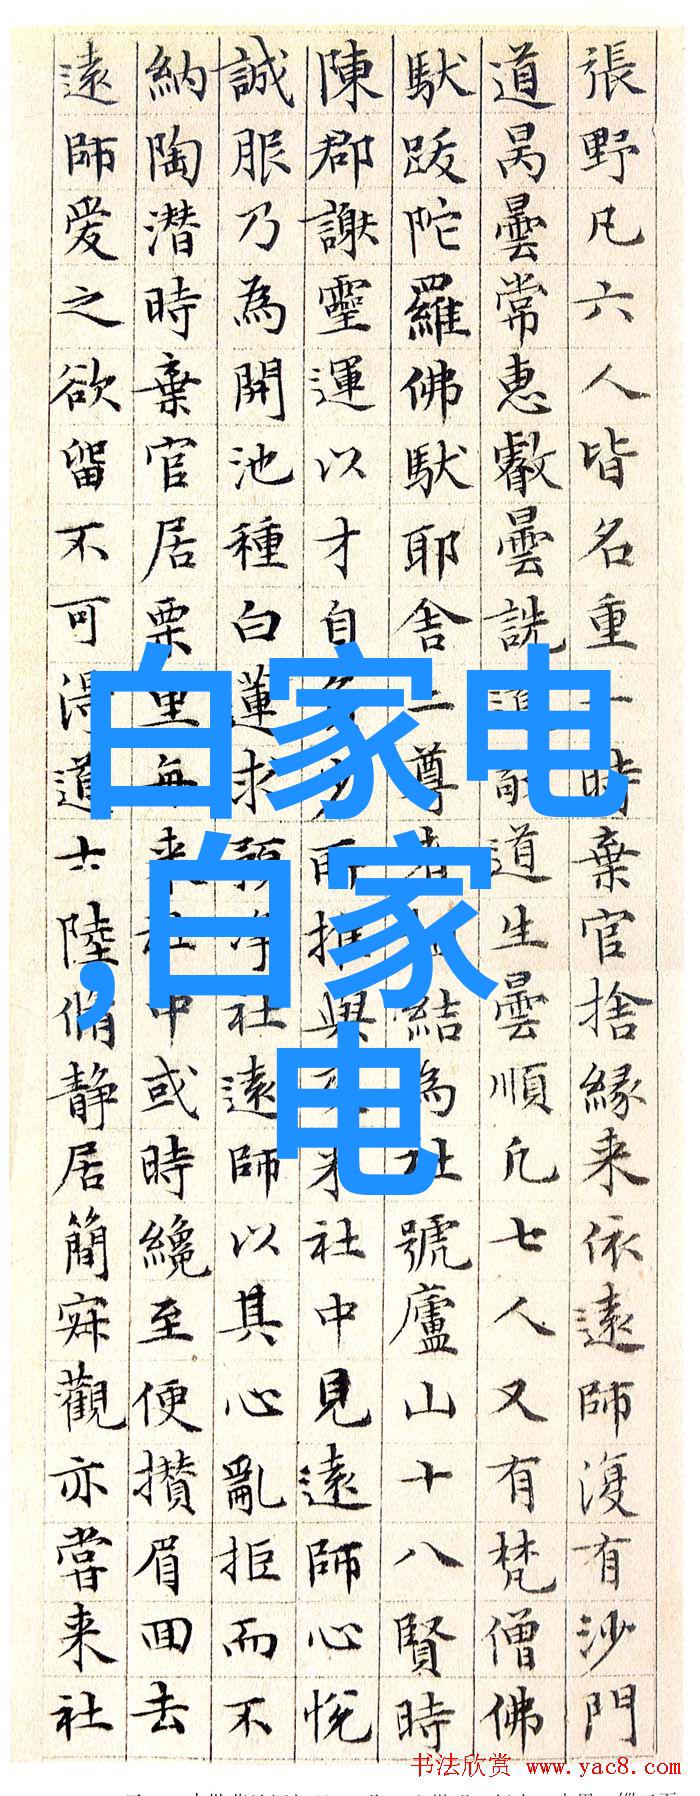 張野凡六人皆名重一時棄官捨緣来依遠師復有沙門
道昺曇常惠叡曇詵道敬道生曇順凡七人又有梵僧佛
馱跋陀羅佛馱耶舍二尊者相結為社號廬山十八賢時
陳郡謝靈運以才自負少所推與及来社中見遠師心悅
誠服乃為開池種白蓮求預淨社遠師以其心亂拒而不
納陶潛時棄官居栗里每来社中或時纔至便攢眉回去
遠師愛之欲留不可得道士陸脩靜居簡寂觀亦嘗来社
白家电
,白家
电
书法欣赏 www.yac8.com